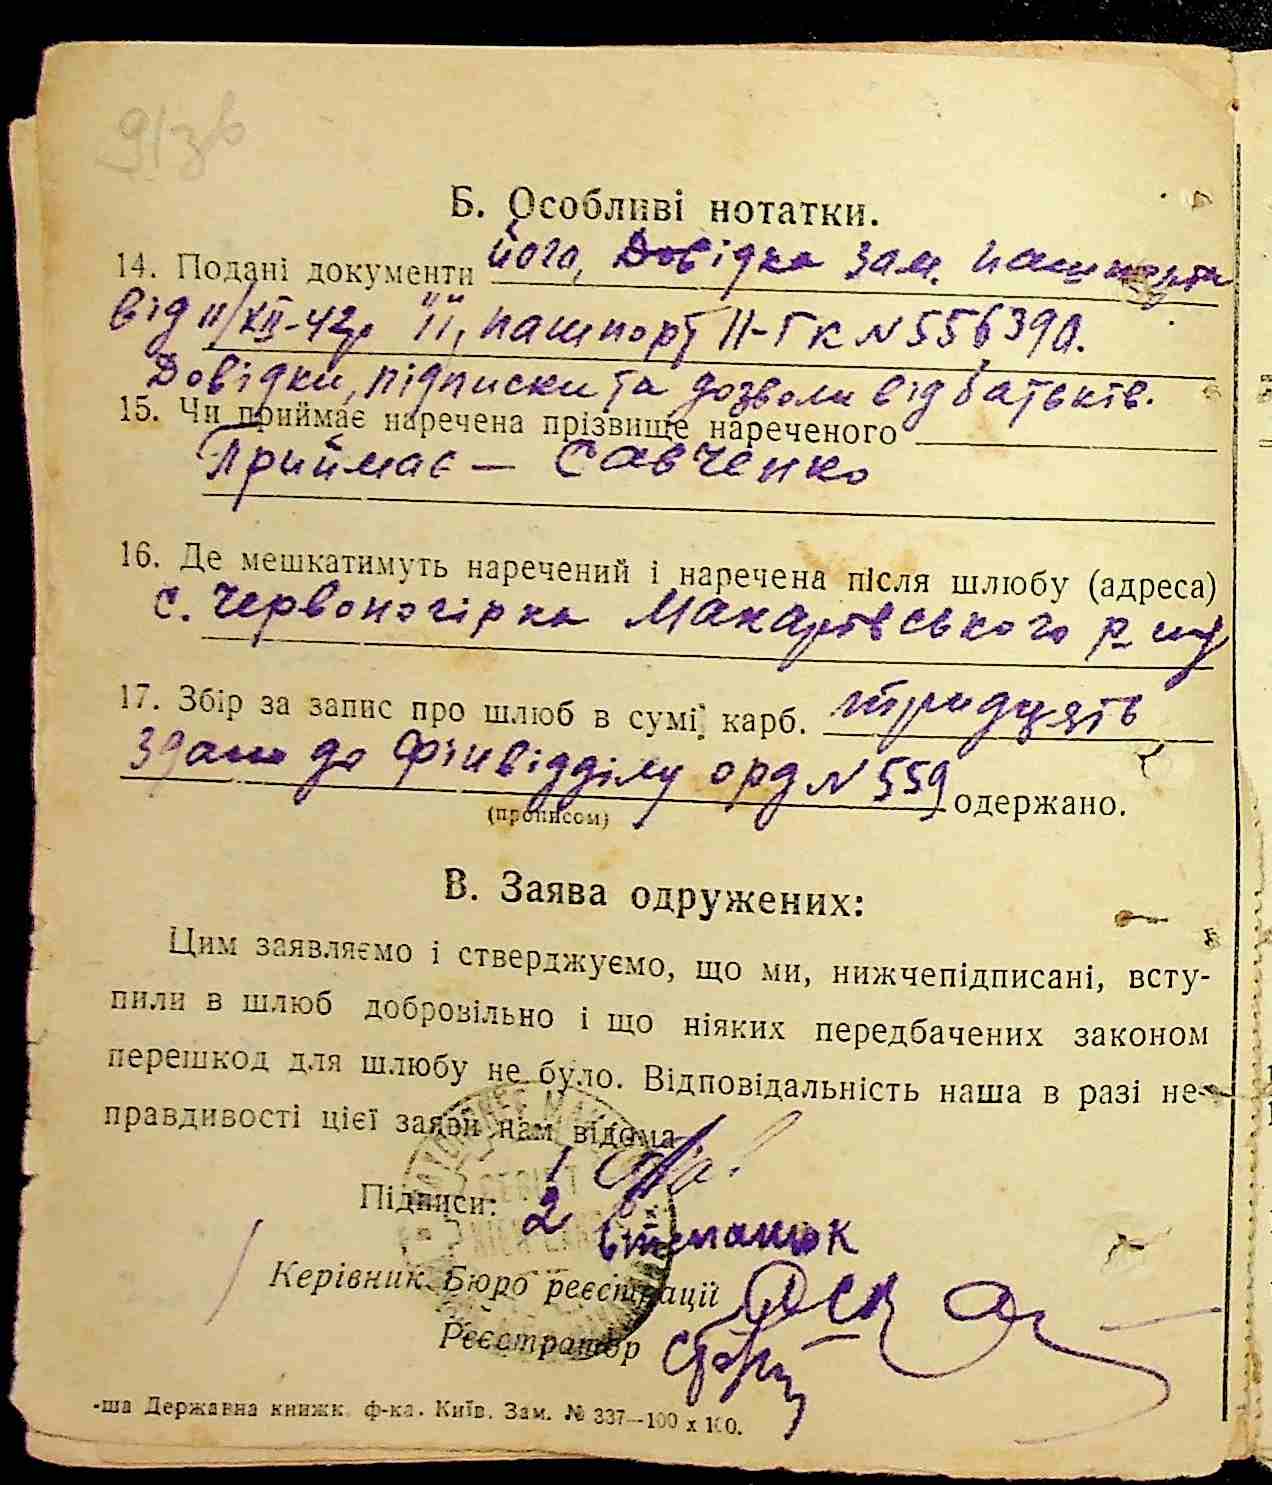 91 зв
Б. Особливі нотатки.
14. Подані документи його, Довідка зам. пашпорта
від 11/XII-42р її, пашпорт II-ГК № 556390.
Довідки, підписки та дозволи від батьків.
15. Чи приймає наречена прізвище нареченого
Приймає — Савченко
16. Де мешкатимуть наречений і наречена після шлюбу (адреса)
с. Червоногірка Макарівського р-ну
17. Збір за запис про шлюб в сумі карб. тридцять
здано до Фінвідділу орд № 559 одержано.
(прописом)
В. Заява одружених:
Цим заявляємо і стверджуємо, що ми, нижчепідписані, всту-
пили в шлюб добровільно і що ніяких передбачених законом
перешкод для шлюбу не було. Відповідальність наша в разі не-
правдивості цієї заяви нам відома
Підписи: 1
2 Степанюк
Керівник Бюро реєстрації
Реєстратор
-ша Державна книжк. ф-ка. Київ. Зам. № 337—100 х 100.